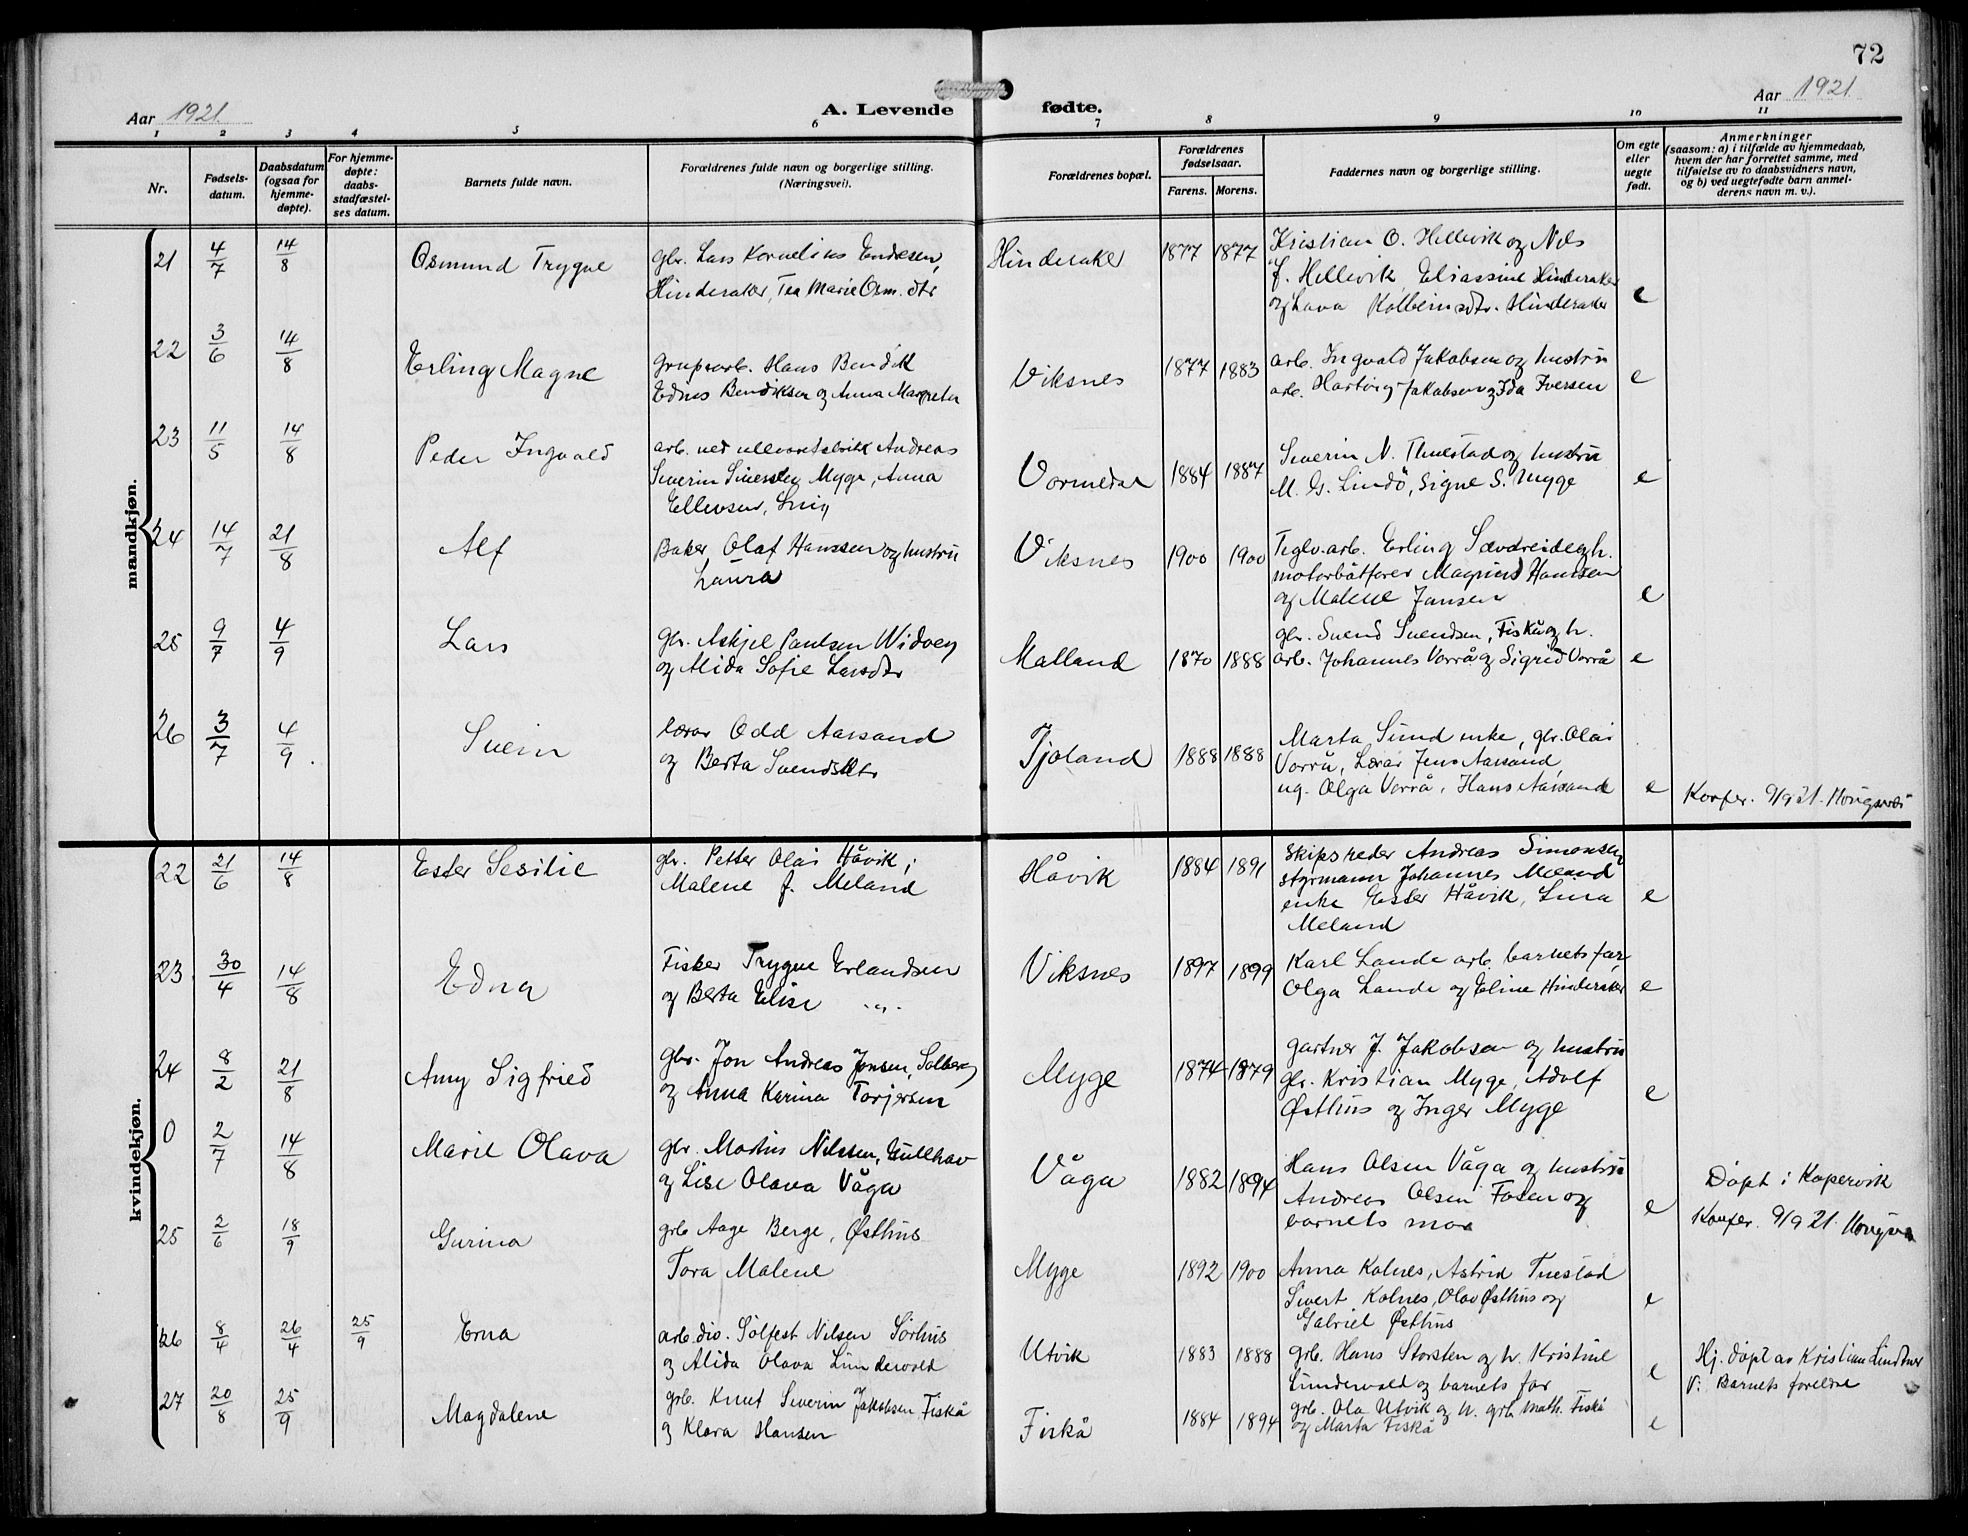 72
Aar 1921
A. Levende fødte.
Aar 1921
1 2 3 4 5 6 7 8 9 10 11
Nr.
Fødsels-
datum.
Daabsdatum
(ogsaa for
hjemme-
døpte).
For hjemme-
døpte:
daabs-
stadfæstel-
ses datum.
Barnets fulde navn.
Forældrenes fulde navn og borgerlige stilling.
(Næringsvei).
Forældrenes bopæl.
Forældrenes
fødselsaar.
Farens. Morens.
Faddernes navn og borgerlige stilling.
Om egte
eller
uegte
født.
Anmerkninger
(saasom: a) i tilfælde av hjemmedaab,
hvem der har forrettet samme, med
tilføielse av to daabsvidners navn,
og b) ved uegtefødte barn anmel-
derens navn m. v.).
mandkjøn.
21 4/7 14/8 Osmund Trygve
gbr. Lars Kornelius Endresen,
Hinderaker, Tea Marie Osm. dtr
Hinderaker 1877 1877
Kristian O. Hellevik og Nils
J. Hellevik, Eliassine Hinderaker
og Lava Kolbeinsdtr. Hinderaker e
22 3/6 14/8 Erling Magne
grupearb. Hans Bendik
Ednes Bendiksen og Anna Margreta
Viksnes 1877 1883
arb. Ingvald Jakobsen og hustru
arb. Hartvig Jakobsen og Ida Iversen e
23 11/5 14/8 Peder Ingvald
arb. ved ullvarefabrikk Andreas
Severin Myge, Anna
Ellevsen,
Vormedal 1884 1887
Severin N. Thuestad og hustru
M. G. Lindö, Signe S. Myge e
24 14/7 21/8 Alf
Baker Olaf Hanssen og hustru
Laura
Viksnes 1900 1900
Teglv.arb. Erling Sævdreide og h.
motorbåtfører Magnus Hanssen
og Malene Jansen e
25 9/7 4/9 Lars
gbr. Askjel Paulsen Widvey
og Alida Sofie Larsdtr
Malland 1870 1888
gbr. Svend Svendsen, Fiskå og h.
arb. Johannes Vorrå og Sigrid Vorrå e
26 3/7 4/9 Svein
lærar Odd Aarsand
og Berta Svendsdtr
Tjoland 1888 1888
Marta Sund enke, gbr. Olai
Vorrå, Lærar Jens Aarsand,
ug. Olga Vorrå, Hans Aarsand e
Konfer. 9/9 21.
kvindekjøn.
22 21/6 14/8 Ester Sesilie
gbr. Petter Olai Håvik;
Malene f. Meland
Håvik 1884 1891
Skipsreder Andreas Simonsen
styrmann Johannes Meland
enke Ester Håvik, Lina
Meland e
23 30/4 14/8 Edna
Fisker Trygve Erlandsen
og Berta Elise -"-
Viksnes 1897 1899
Karl Lande arb. barnets far,
Olga Lande og Eline Hinderaker e
24 8/2 21/8 Amy Sigfried
gbr. Jon Andreas Jonsen, Solberg
og Anna Karina Torjersen
Myge 1874 1879
gartner J. Jakobsen og hustru
gbr. Kristian Myge, Adolf
Østhus og Inger Myge e
0 2/7 14/8 Marie Olava
gbr. Martin Nilsen, Gullhav
og Lise Olava Våga
Våga 1882 1894
Hans Olsen Våga og hustru
Andreas Olsen Fosen og
barnets mor e
Döpt i Kopervik
Konfer. 9/9 21.
25 2/6 18/9 Gurina
grb Aage Berge, Østhus
Tora Malene
Myge 1892 1900
Anna Kolnes, Astrid Tuestad
Sivert Kolnes, Olav Østhus og
Gabriel Østhus e
26 8/4 26/4 25/9 Erna
arb. div. Sölfest Nilsen Sörhus
og Alida Olava Lundevold
Utvik 1883 1888
grb. Hans Storsten og h. Kristine
Lundevold og barnets far e
Hj. döpt av Kristian Lindtner
V: Barnets foreldre
27 20/8 25/9 Magdalene
grb. Knut Severin Jakobsen Fiskå
og Klara Hansen
Fiskå 1884 1894
grb. Ola Utvik og h. grb. Math. Fiskå
og Marta Fiskå e